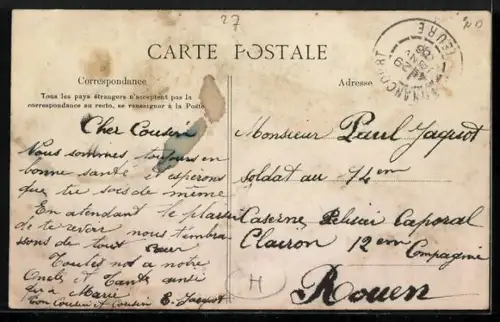 27
20
CARTE POSTALE
Correspondance
Tous les pays étrangers n'acceptent pas la
correspondance au recto, se renseigner à la Poste
Cher Cousin
Nous sommes toujours en
bonne santé et esperons
que tu sois de même
En atendant le plaisir
de te revoir nous t'embra
ssons de tout Cœur
a notre
Oncle et Tante ainsi
Marie
Ton Cousin et Cousine
E. Jaquot
Adresse
Monsieur Paul Jaquot
soldat au 74em
Caserne Caporal
Clairon 12em
Compagnie
Rouen
H
EURE